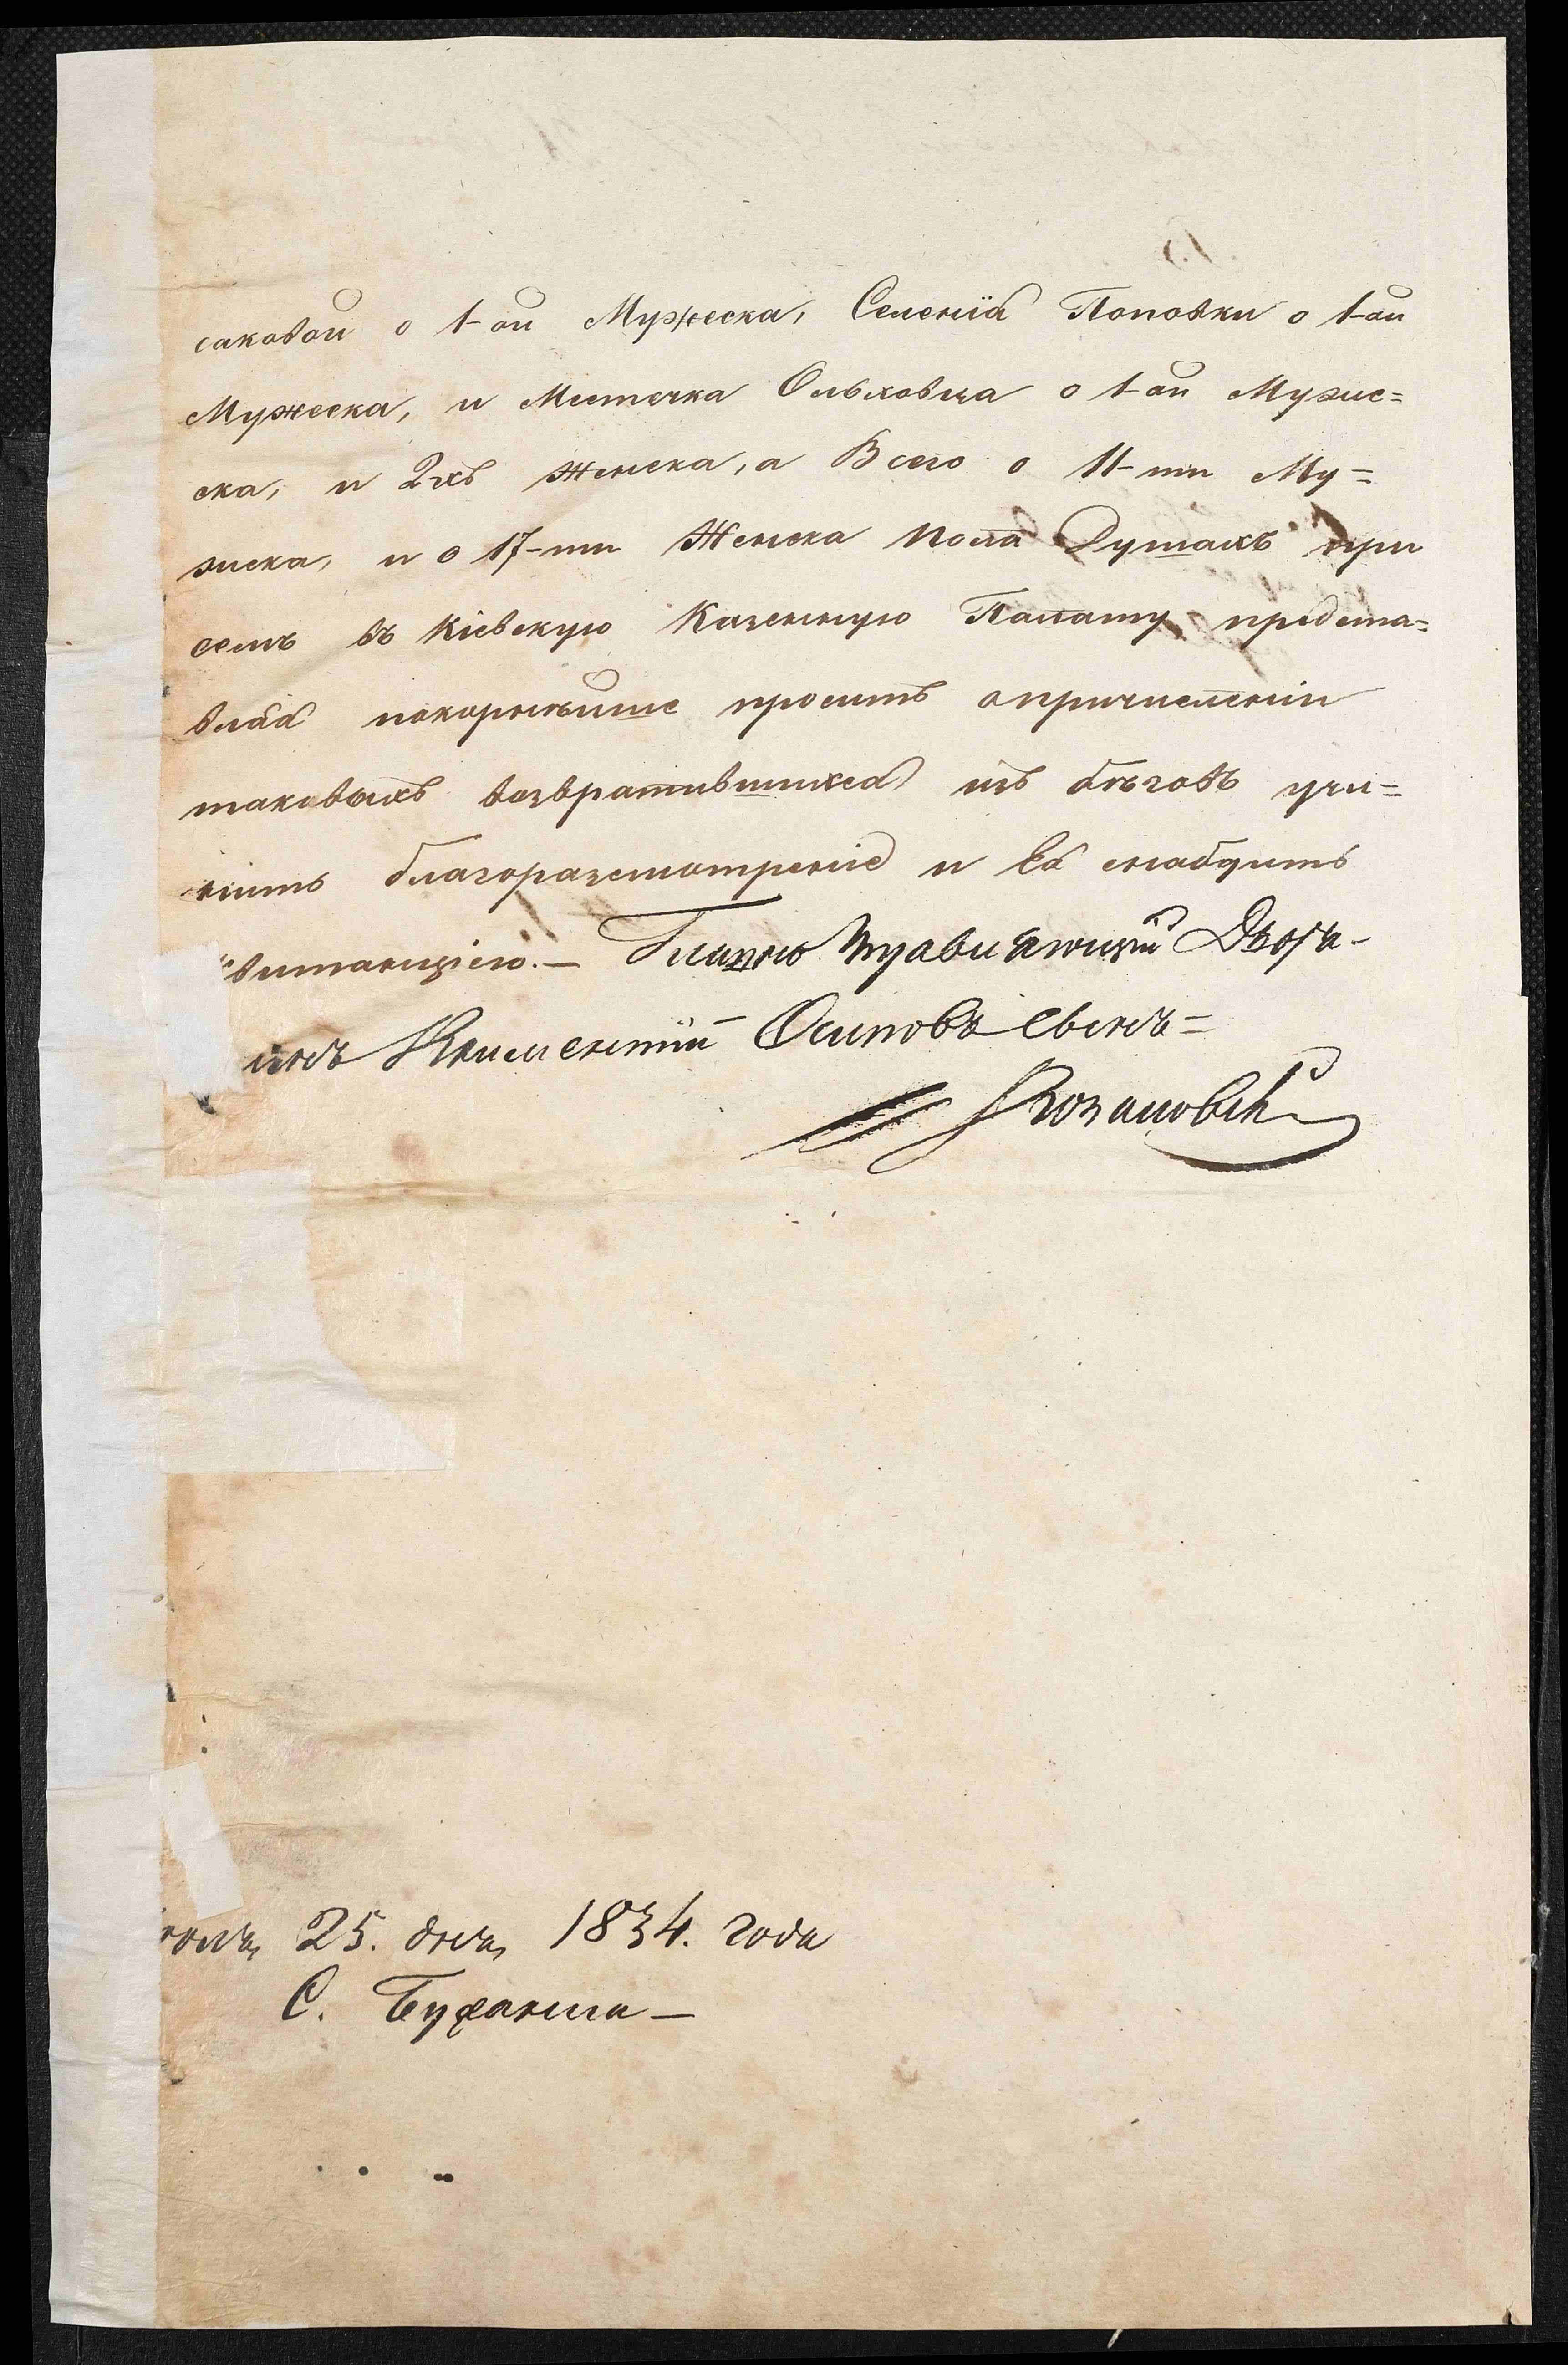 саковой о 1-ой Мужеска, Селенія Поповки о 1-ой
Мужеска, и Местечка Ольховца о 1-ой Мужес=
ска, и 2хъ женска, а Всего о 11-ти Му=
жеска, и о 17-ти Женска пола Душахъ при
семъ въ Кіевскую Казенную Палату предста=
вляя покорнѣйше проситъ опричисленіи
таковыхъ возвратившихся изъ бѣговъ учи=
нить благоразсмотреніе и Ея снабдить
квитанціею.— Главно Управляющій Дворя-
нинъ Климентий Осиповъ Сынъ=
Козановскій
25. дня, 1834. года
С.